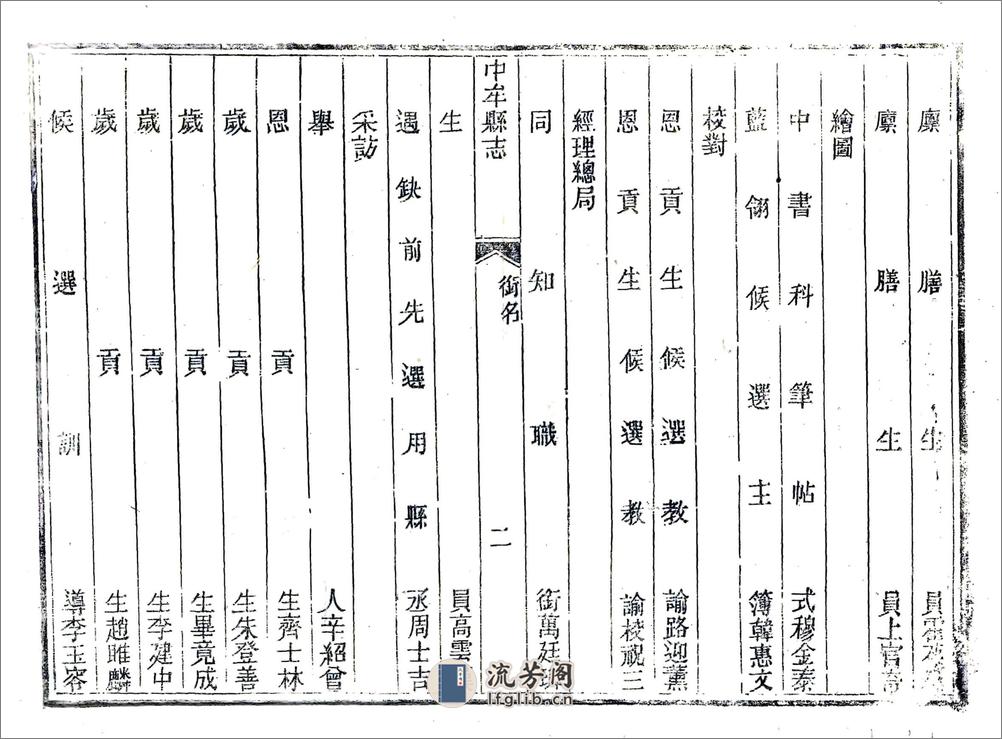 廩膳生員
廩膳生員上官
繪圖
中書科筆帖式穆金泰
藍翎候選主簿韓惠文
校對
恩貢生候選教諭路迎薰
恩貢生候選教諭校祝三
經理總局
同知職銜萬廷
中牟縣志
銜名
二
生員高雲
遇缺前先選用縣丞周士吉
采訪
舉人辛紹曾
恩貢生齊士林
歲貢生朱登善
歲貢生畢竟成
歲貢生李建中
歲貢生趙睢麟
候選訓導李玉容
流芳阁
lfglib.cn